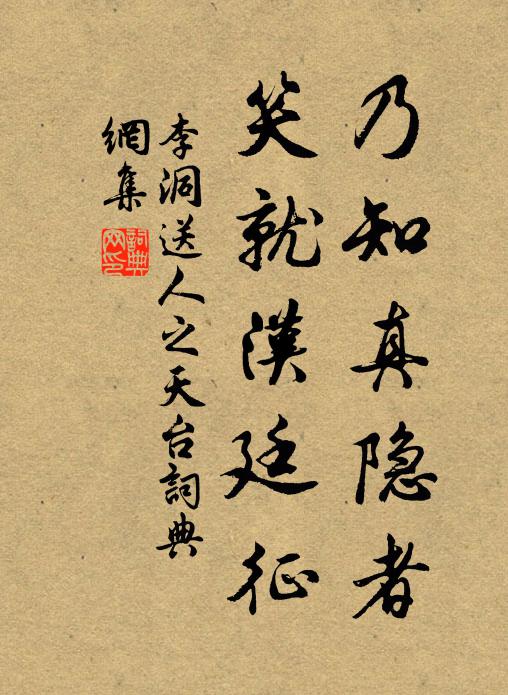 乃知真隐者
笑就漢廷征
李洞送人之天台詞典
網集
詞典網印